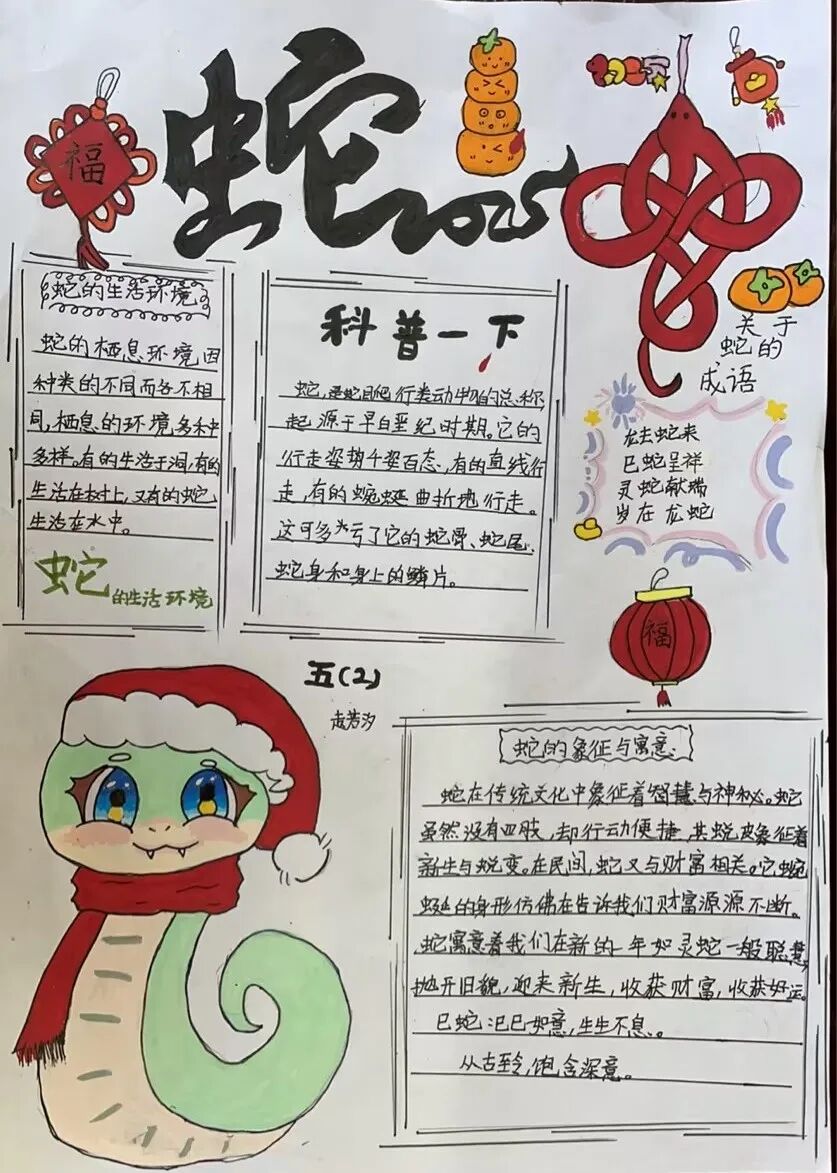 福
蛇2025
蛇的生活环境
蛇的栖息环境因
种类的不同而各不相
同,栖息的环境多种
多样。有的生活于洞,有的
生活在树上,又有的蛇,
生活在水中。
蛇的生活环境
科普一下
蛇,是蛇目爬行类动物的总称,
起源于早白垩纪时期。它的
行走姿势千姿百态,有的直线行
走,有的蜿蜒曲折地行走。
这可多为亏了它的蛇骨、蛇尾、
蛇身和身上的鳞片。
关于
蛇的
成语
龙去蛇来
巳蛇呈祥
灵蛇献瑞
岁在龙蛇
福
五(2)
芳汐
蛇的象征与寓意:
蛇在传统文化中象征着智慧与神秘。蛇
虽然没有四肢,却行动便捷,其蜕皮象征着
新生与蜕变。在民间,蛇又与财富相关。它蜿
蜒的身形仿佛在告诉我们财富源源不断。
蛇寓意着我们在新的一年如灵蛇一般聪慧,
抛开旧貌,迎来新生,收获财富,收获好运。
巳蛇:巳巳如意,生生不息。
从古至今,饱含深意。